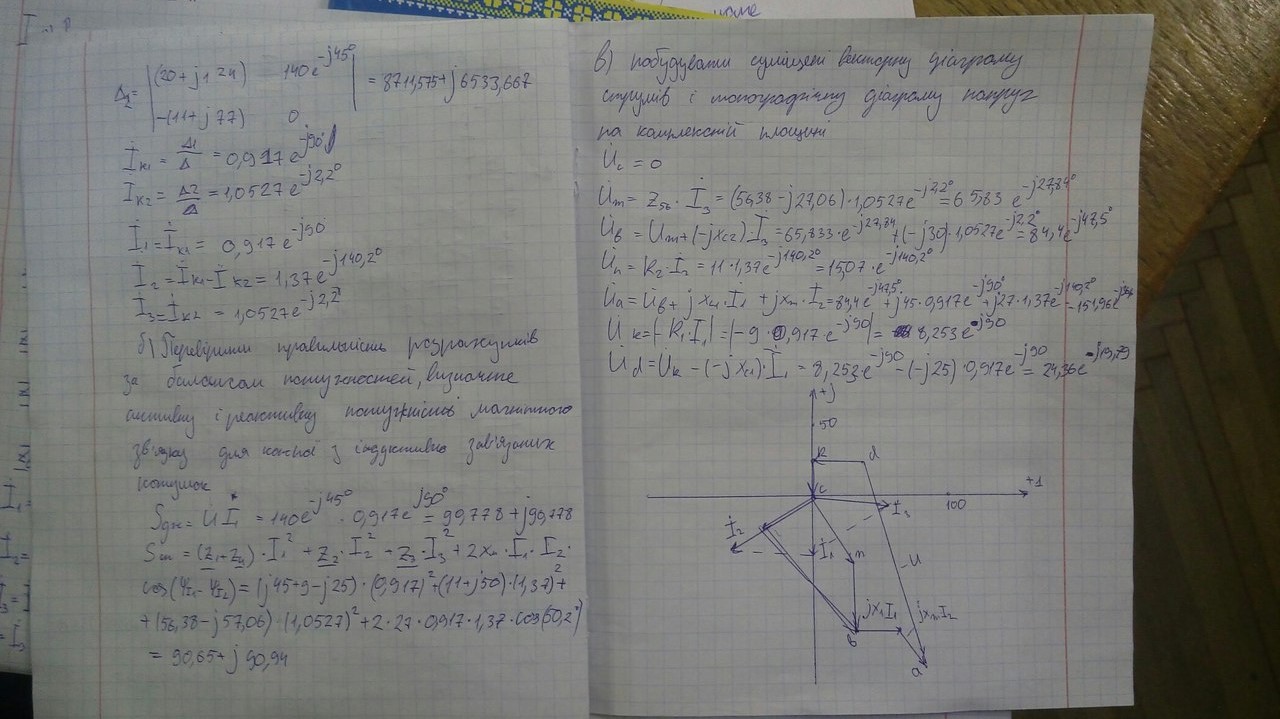 Δ₂ = |(20+j124) 140e^-j45° | = 8711,575+j6533,667
|-(11+j77) 0 |
İк1 = Δ1/Δ = 0,917 e^-j90°
Iк2 = Δ2/Δ = 1,0527e^-j2,2°
İ1 = İк1 = 0,917e^-j90
İ2 = İк1 - İк2 = 1,37e^-j140,2°
İ3 = İк2 = 1,0527e^-j2,2°
б) Перевірити правильність розрахунків
за балансом потужностей, визначте
активну і реактивну потужність магнітного
зв'язку для кожної з індуктивно зав'язаних
котушок
Sдж = U̇İ1 = 140e^-j45° · 0,917e^j90° = 90,778+j90,778
Sсп = (z1+z4)·I1² + z2·I2² + z3·I3² + 2xм·I1·I2·
cos(ψI1-ψI2) = (j45+9-j25)·(0,917)²+(11+j50)·(1,37)²+
+(56,38-j57,06)·(1,0527)²+2·27·0,917·1,37·cos(50,2°)
= 90,65+j90,94
в) побудувати суміщені векторну діаграму
струмів і топографічну діаграму напруг
на комплексній площині
U̇c = 0
U̇m = z5в·İ3 = (56,38-j27,06)·1,0527e^-j2,2° = 65,83 e^-j27,84°
U̇в = U̇m+(-jxc2)·İ3 = 65,833·e^-j27,84+(-j30)·1,0527e^-j2,2° = 84,4e^-j47,5°
U̇n = R2·İ2 = 11·1,37e^-j140,2° = 15,07·e^-j140,2°
U̇к = |-R1·İ1| = |-9·0,917·e^-j90| = 8,253e^-j90
U̇d = U̇к-(-jxc1)·İ1 = 8,253e^-j90-(-j25)·0,917e^-j90 = 24,36e^-j19,79
+j
50
k
d
c
+1
100
İ3
İ2
İ1
n
U
jx1I1
jxmI2
в
a